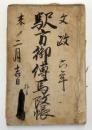 文政六年
駅方御傳馬改帳
未二月吉日